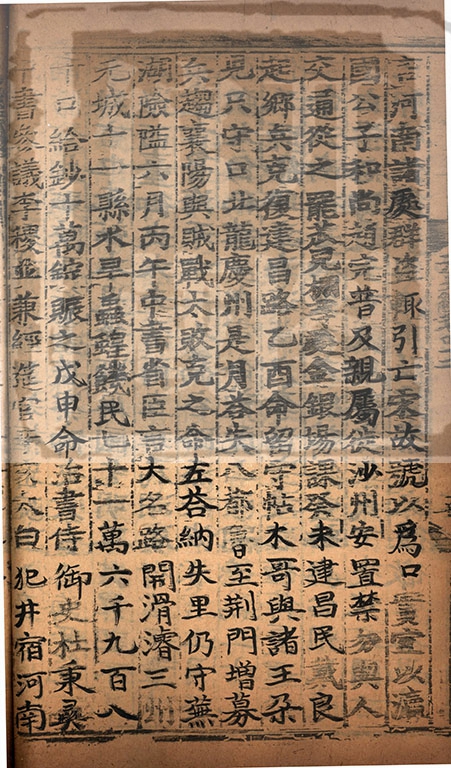 言河南諸處群盜輒引亡宋故號以爲口實宜以瀛
國公子和尚趙完普及親屬徙沙州安置禁勿與人
交通從之罷金銀場課癸未建昌民戴良
起鄉兵克復建昌路乙酉命留守帖木哥與諸王朶
兒只守口北龍慶州是月荅失八都魯至荊門增募
兵趨襄陽與賊戰大敗克之命左荅納失里仍守蕪
湖險隘六月丙午中書省臣言大名路開滑濬三州
元城十一縣水旱蟲蝗饑民七十一萬六千九百八
十口給鈔十萬錠賑之戊申命治書侍御史杜秉彝
中書參議李稷並兼經筵官太白犯井宿河南